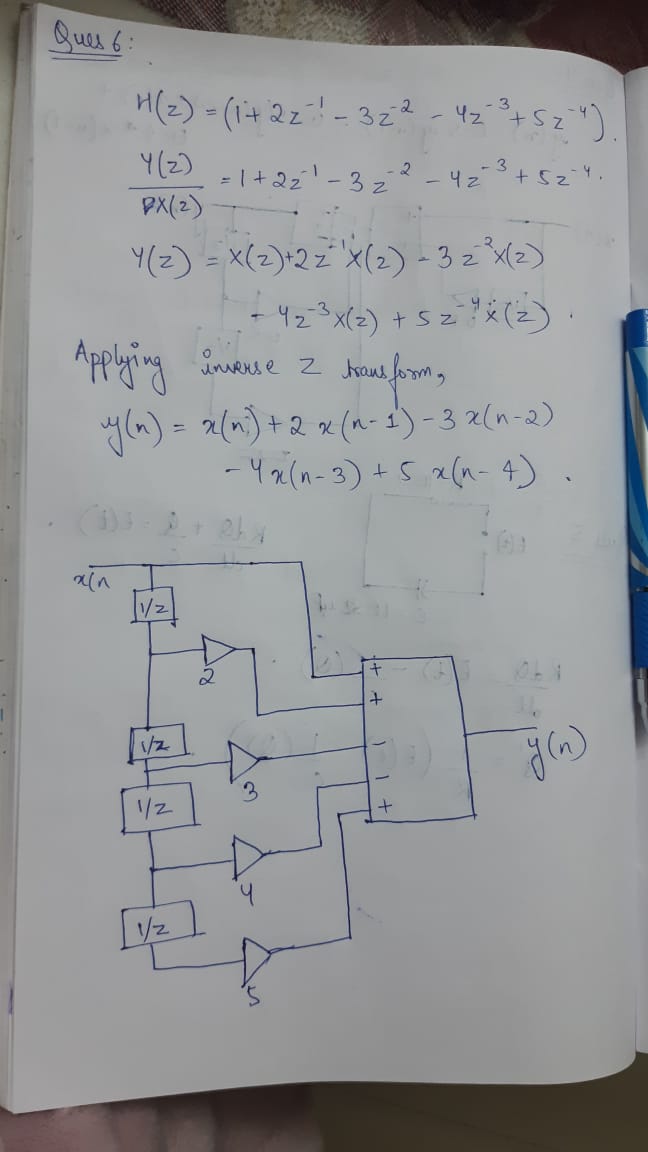 Ques 6:
H(z) = (1 + 2z⁻¹ - 3z⁻² - 4z⁻³ + 5z⁻⁴).
Y(z)/X(z) = 1 + 2z⁻¹ - 3z⁻² - 4z⁻³ + 5z⁻⁴.
Y(z) = X(z) + 2z⁻¹X(z) - 3z⁻²X(z)
- 4z⁻³X(z) + 5z⁻⁴X(z).
Applying inverse Z transform,
y(n) = x(n) + 2x(n-1) - 3x(n-2)
- 4x(n-3) + 5x(n-4).
x(n
1/z
2
+
+
1/z
-
y(n)
3
-
1/z
+
4
1/z
5